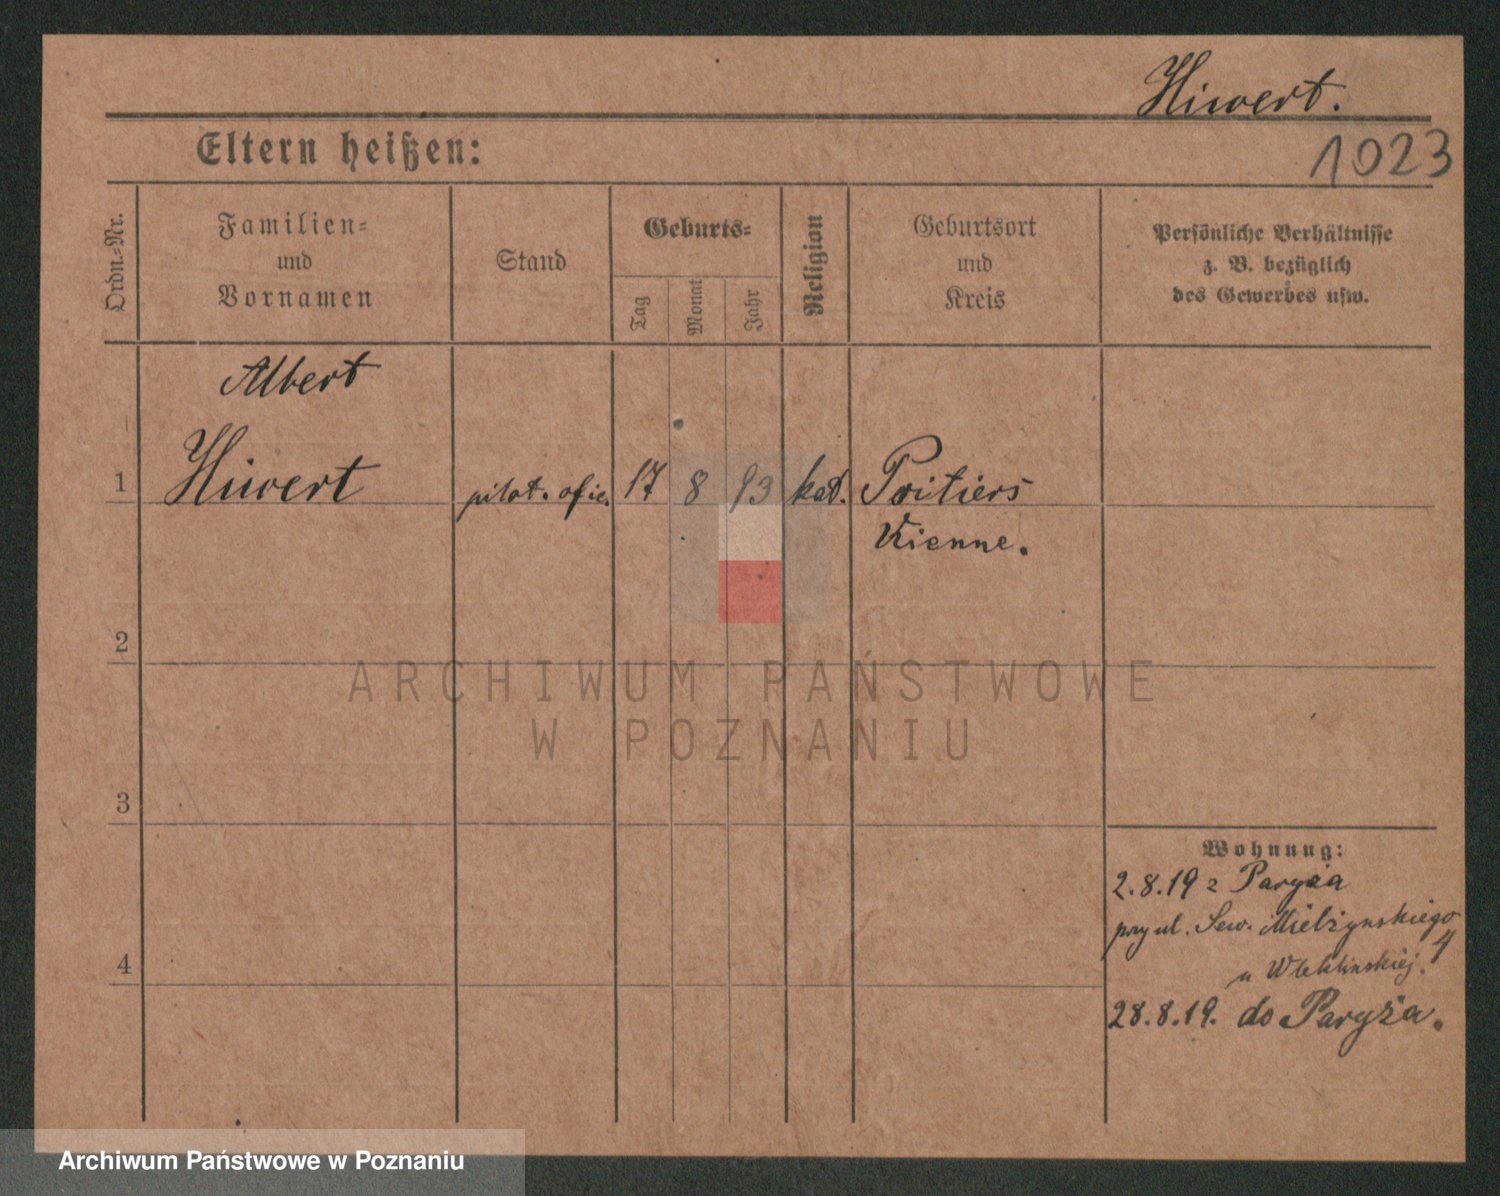 Hiwert.
1023
Eltern heißen:
Ordn.=Nr.
Familien=
und
Vornamen
Stand
Geburts=
Tag
Monat
Jahr
Religion
Geburtsort
und
Kreis
Persönliche Verhältnisse
z. B. bezüglich
des Gewerbes usw.
Albert
1 Hiwert pilot. ofic. 17 8 93 kat. Poitiers
Vienne.
2
ARCHIWUM PAŃSTWOWE
W POZNANIU
3
Wohnung:
2.8.19 z Paryża
przy ul. Sew. Mielżynskiego 4
4
u
28.8.19. do Paryża.
Archiwum Państwowe w Poznaniu